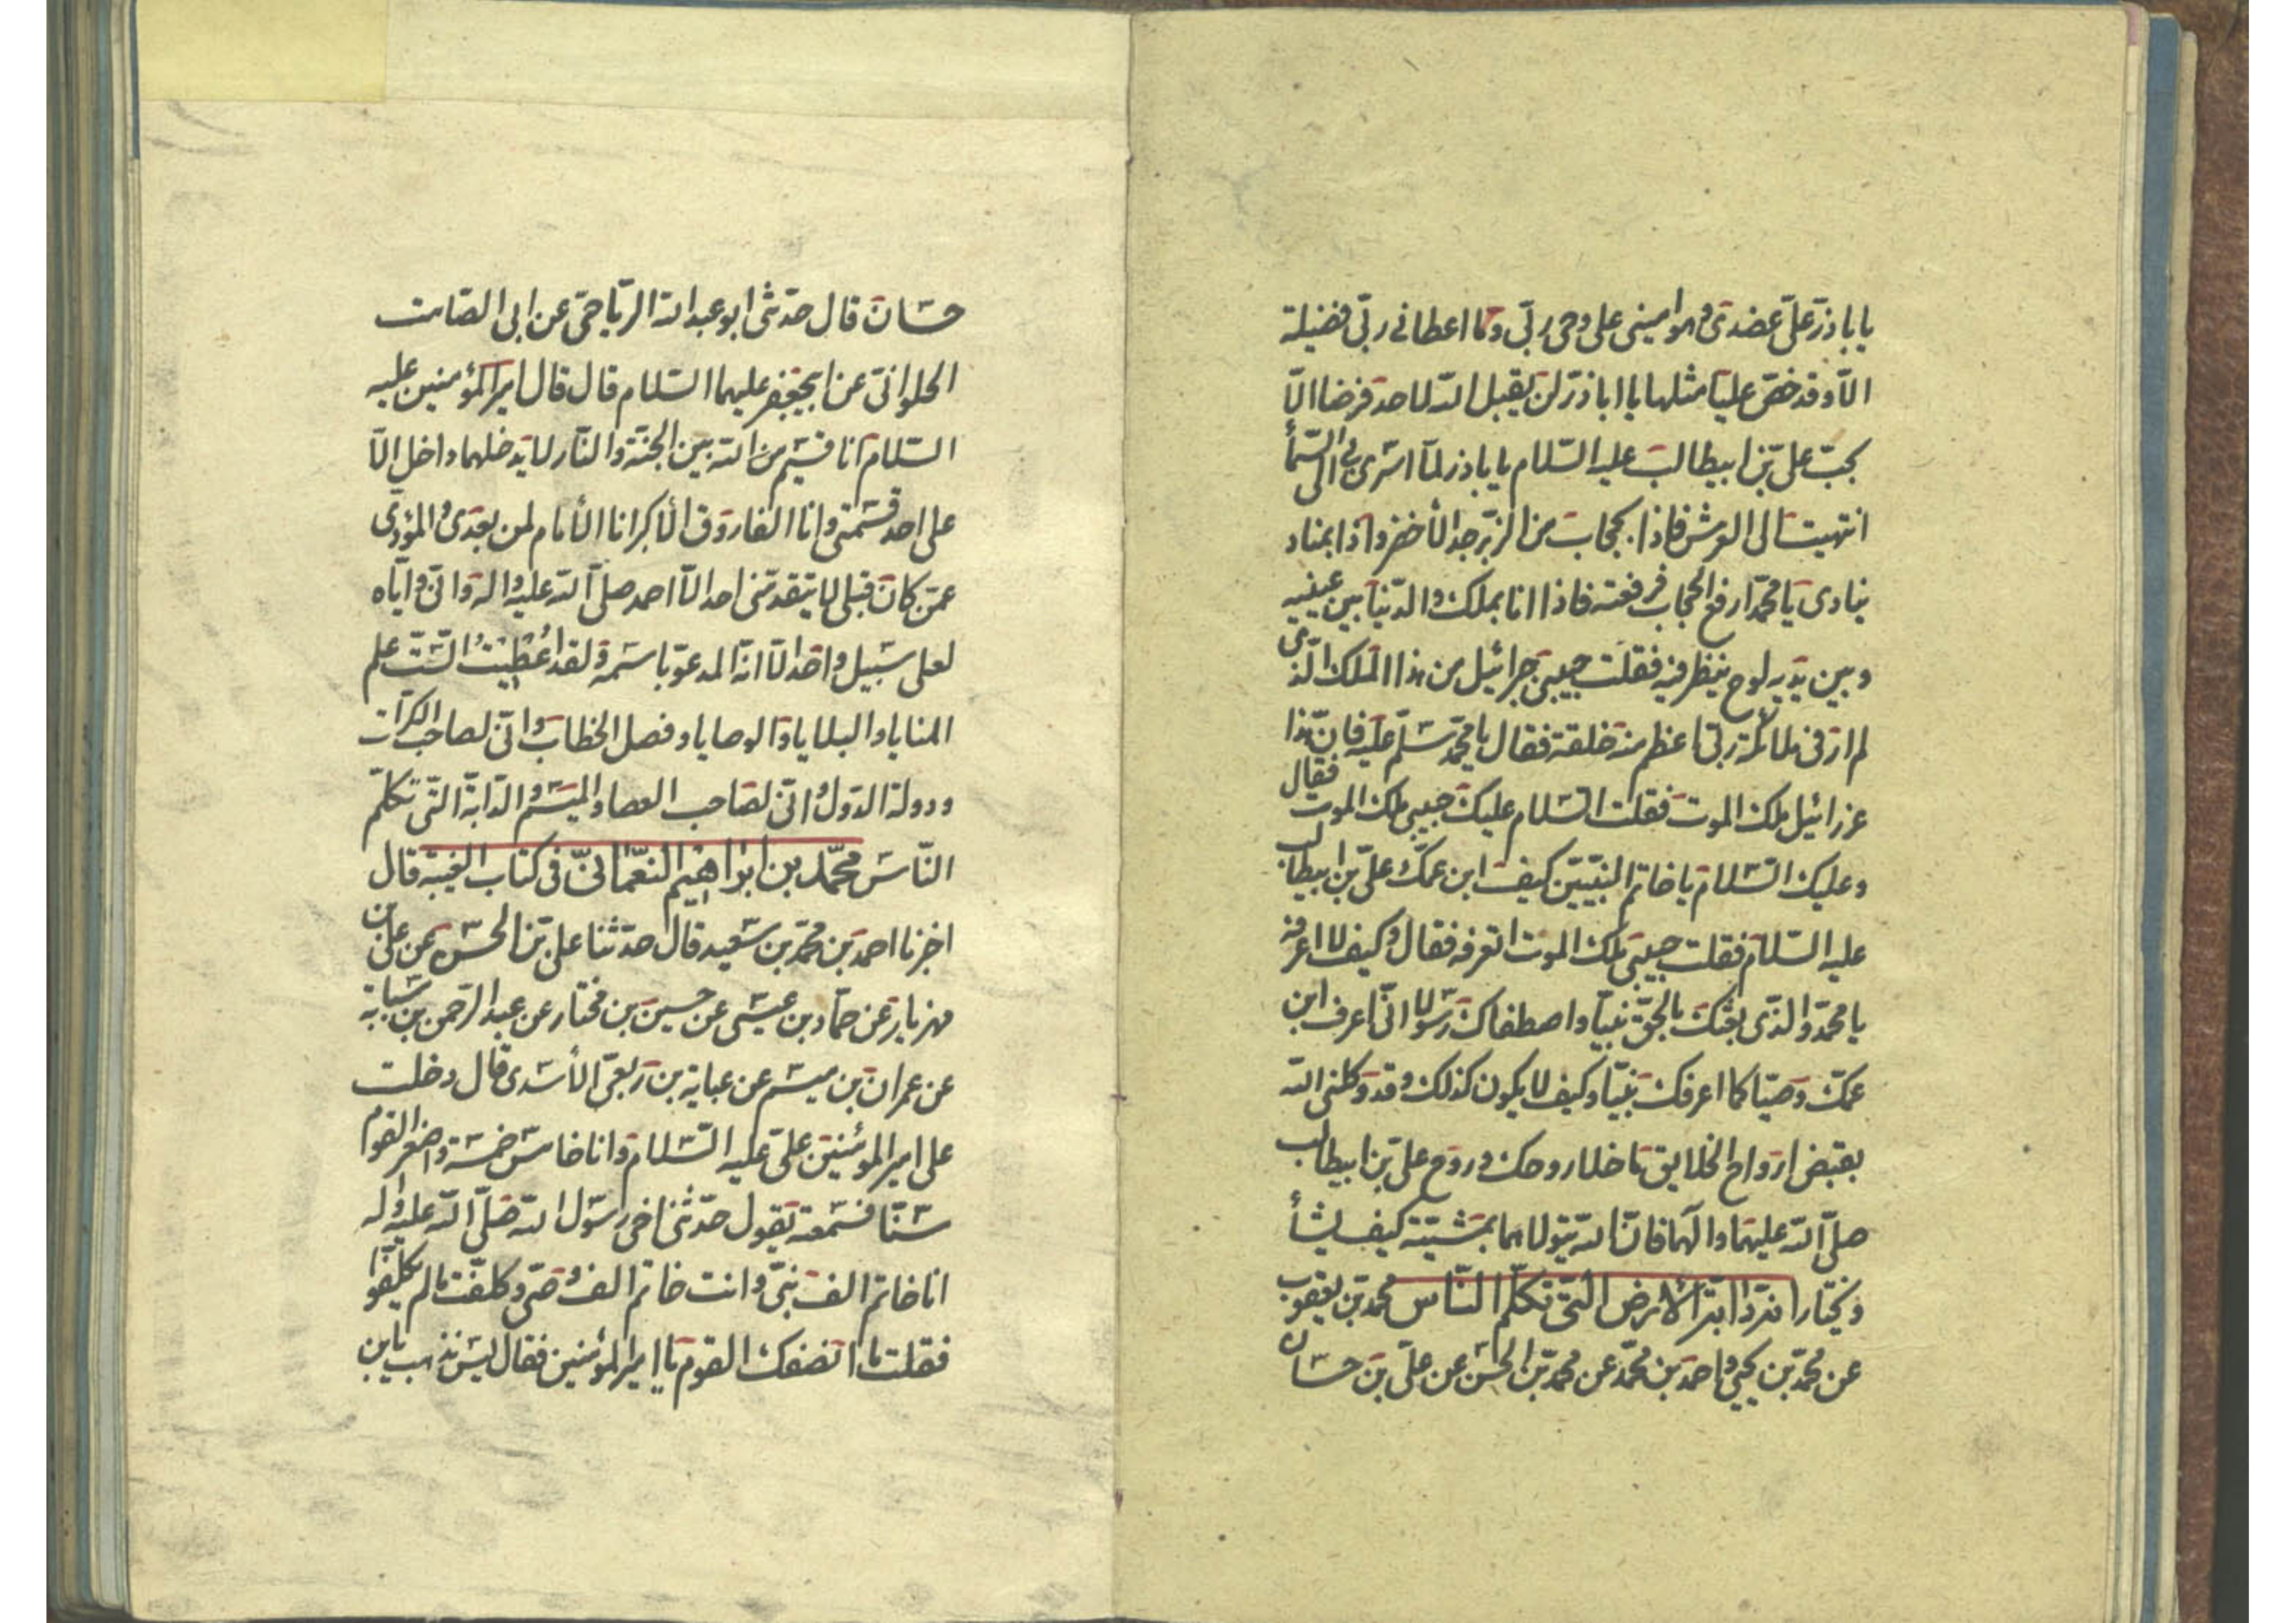 يا باذر علىّ عضدى وهو امينى على وحى ربّى وما اعطانے ربّى فضيلة
الّا وقد خصّ عليّا مثلها يا اباذر لن يقبل الله لاحد فرضا الّا
بحبّ علىّ بن ابيطالب عليه السّلام يا باذر لمّا اسرى بى الى السّمأ
انتهيت الى العرش فاذا بحجاب من الزّبرجد الأخضر واذا بمناد
ينادى يا محمّد ارفع الحجاب فرفعته فاذا انا بملك والدّنيا بين عينيه
وبين يديه لوح ينظر فيه فقلت حبيبى جبرائيل من هذا الملك الّذى
لم ار فى ملائكة ربّى اعظم منه خلقة فقال يا محمّد سلّم عليه فانّ هذا
عزرائيل ملك الموت فقلت السّلام عليك حبيبى ملك الموت فقال
وعليك السّلام يا خاتم النّبيّين كيف ابن عمّك علىّ بن ابيطالب
عليه السّلام فقلت حبيبى ملك الموت اتعرفه فقال وكيف لا اعرفه
يا محمّد والّذى بعثك بالحقّ نبيّا واصطفاك رسولا انّى اعرف ابن
عمّك وصيّا كما اعرفك نبيّا وكيف لا يكون كذلك وقد وكلنى الله
بقبض ارواح الخلايق ما خلا روحك وروح علىّ بن ابيطالب
صلّى الله عليهما وآلهما فانّ الله يتولاهما بمشيّته كيف يشأ
ويختار انه دابة الارض الّتى تكلّم النّاس محمد بن يعقوب
عن محمّد بن يحيى واحمد بن محمّد عن محمّد بن الحسن عن علىّ بن حسّان
حسّان قال حدّثنى ابو عبد الله الرّياحىّ عن ابى الصّامت
الحلوانىّ عن ابيجعفر عليهما السّلام قال قال امير المؤمنين عليه
السّلام انا قسيم من الله بين الجنّة والنّار لا يدخلهما داخل الّا
على احد قسمتى وانا الفاروق الأكبر انا الأمام لمن بعدى والمؤدّى
عمّن كان قبلى لا يتقدّمنى احد الّا احمد صلّى الله عليه واله وانّى وايّاه
لعلى سبيل واحد الّا انّه المدعوّ باسمه ولقد اُعْطِيْتُ السّتّ علم
المنايا والبلايا والوصايا وفصل الخطاب وانّى لصاحب الكرّات
ودولة الدّول وانّى لصاحب العصا والميسم والدّابة الّتى تكلّم
النّاس محمّد بن ابراهيم النّعمانىّ فى كتاب الغيبة قال
اخبرنا احمد بن محمّد بن سعيد قال حدّثنا علىّ بن الحسن عن علىّ بن
مهزيار عن حمّاد بن عيسى عن حسين بن مختار عن عبد الرّحمن بن سيابة
عن عمران بن ميسم عن عباية بن ربعىّ الأسدى قال دخلت
على امير المؤمنين علىّ عليه السّلام وانا خامس خمسة واصغر القوم
سنّا فسمعته يقول حدّثنى اخى رسول الله صلّى الله عليه وآله
انا خاتم الف نبىّ وانت خاتم الف وصىّ وكلّفت ما لم يكلّفوا
فقلت ما انصفك القوم يا امير المؤمنين فقال ليس تذهب يابن